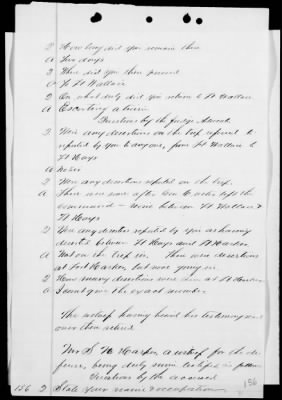 Q How long did you remain there
A Two days
Q Where did you then proceed
A To Ft Wallace
Q On what duty did you return to Ft Wallace
A Escorting a train
Questions by the Judge Advocate
Q Were any desertions on the trip referred to
reported by you to anyone, from Ft Wallace to
Ft Hays
A None
Q Were any desertions reported on the trip.
A There were some after Gen Custer left the
command - none between Ft Wallace &
Ft Hays
Q Were any deserters reported by you as having
deserted between Ft Hays and Ft Harker
A Not on the trip in. There were desertions
at Fort Harker, but were going in
Q How many desertions were there at Ft Harker
A I cant give the exact number.
The witness having heard his testimony read
over then retired.
Mr S. H. Harper, a witness for the de-
fense, being duly sworn testified as follows
Questions by the accused
156 Q State your name & occupation
156